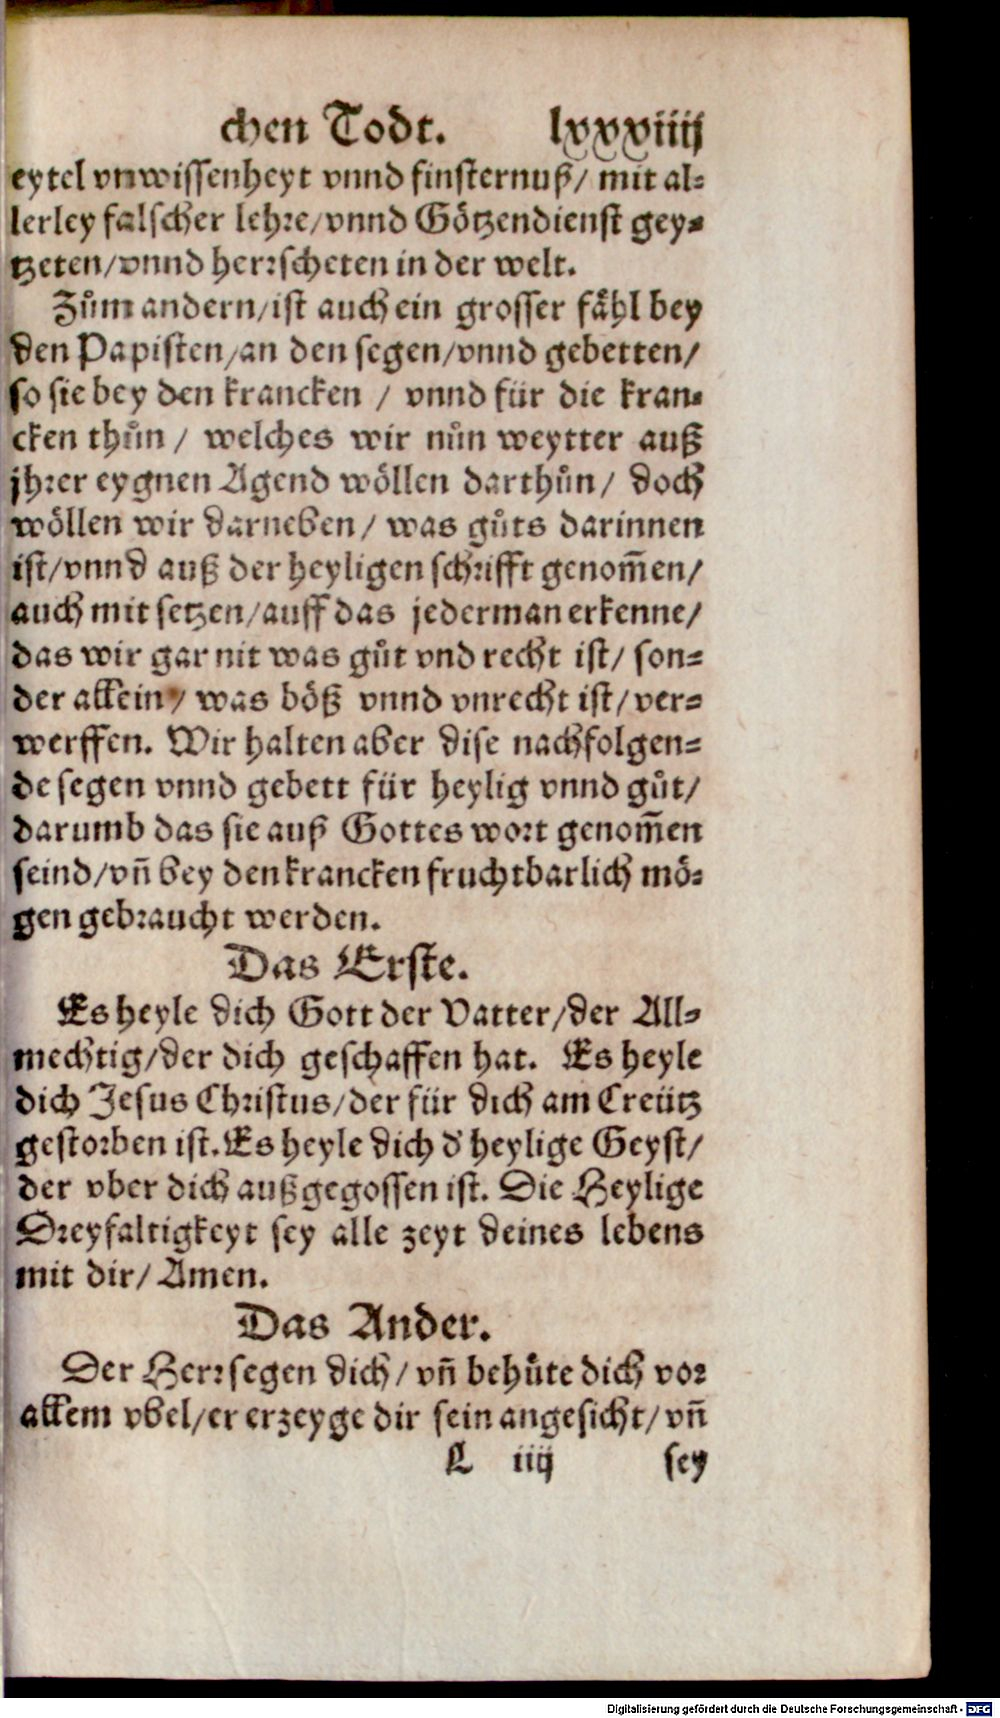 chen Todt. lxxxviiij
eytel vnwissenheyt vnnd finsternuß/ mit al-
lerley falscher lehre/vnnd Götzendienst gey-
tzeten/vnnd herrscheten in der welt.
Zům andern/ist auch ein grosser fåhl bey
den Papisten/an den segen/vnnd gebetten/
so sie bey den krancken / vnnd für die kran-
cken thůn / welches wir nůn weytter auß
jhrer eygnen Agend wöllen darthůn/ doch
wöllen wir darneben/ was gůts darinnen
ist/vnnd auß der heyligen schrifft genom̃en/
auch mit setzen/auff das jederman erkenne/
das wir gar nit was gůt vnd recht ist/ son-
der allein/ was böß vnnd vnrecht ist/ ver-
werffen. Wir halten aber dise nachfolgen-
de segen vnnd gebett für heylig vnnd gůt/
darumb das sie auß Gottes wort genom̃en
seind/vñ bey den krancken fruchtbarlich mö-
gen gebraucht werden.
Das Erste.
Es heyle dich Gott der Vatter/der All-
mechtig/der dich geschaffen hat. Es heyle
dich Jesus Christus/der für dich am Creütz
gestorben ist. Es heyle dich d' heylige Geyst/
der vber dich außgegossen ist. Die Heylige
Dreyfaltigkeyt sey alle zeyt deines lebens
mit dir/ Amen.
Das Ander.
Der Herr segen dich/ vñ behůte dich vor
allem vbel/er erzeyge dir sein angesicht/ vñ
L iiij sey
Digitalisierung gefördert durch die Deutsche Forschungsgemeinschaft - DFG